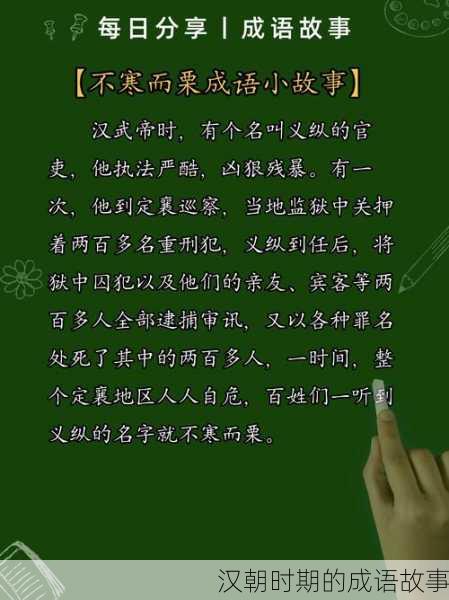 每日分享丨成语故事
【不寒而栗成语小故事】
汉武帝时，有个名叫义纵的官
吏，他执法严酷，凶狠残暴。有一
次，他到定襄巡察，当地监狱中关押
着两百多名重刑犯，义纵到任后，将
狱中囚犯以及他们的亲友、宾客等两
百多人全部逮捕审讯，又以各种罪名
处死了其中的两百多人，一时间，整
个定襄地区人人自危，百姓们一听到
义纵的名字就不寒而栗。
汉朝时期的成语故事